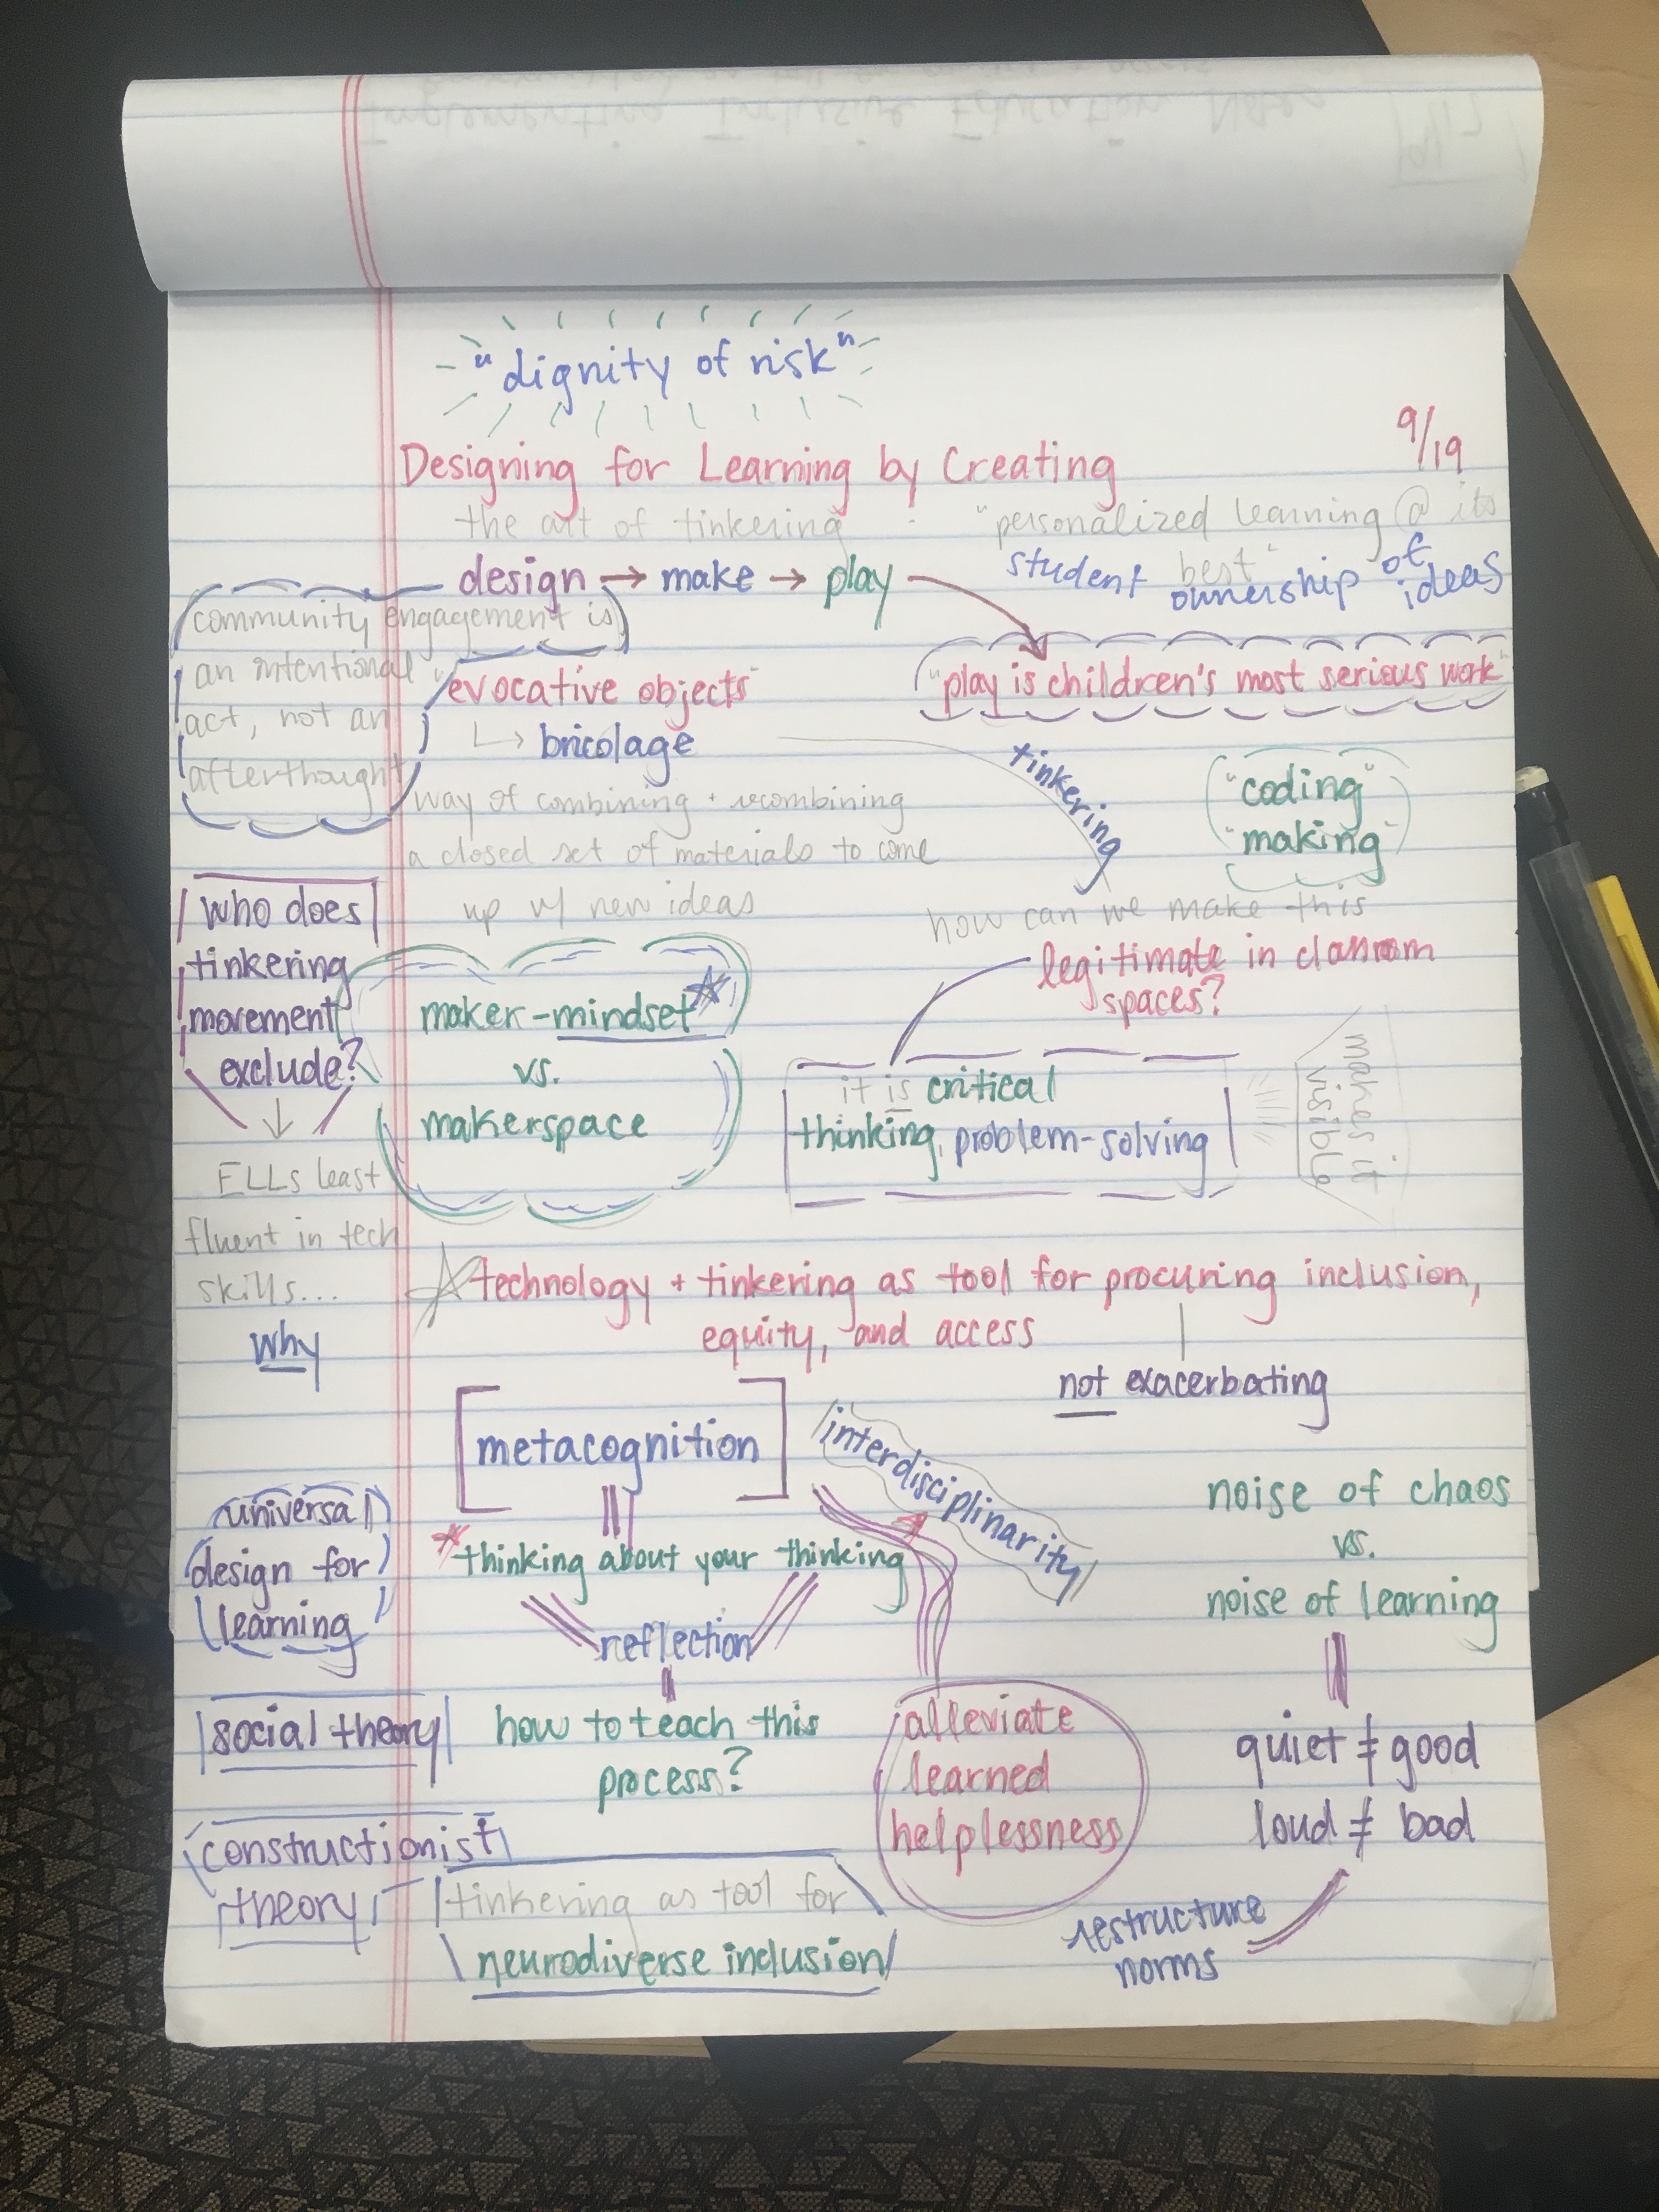 "dignity of risk"
9/19
Designing for Learning by Creating
the art of tinkering
"personalized learning @ its best"
design → make → play
student ownership of ideas
community engagement is
an intentional
act, not an
afterthought
"play is children's most serious work"
"evocative objects"
↳ bricolage
way of combining + recombining
a closed set of materials to come
up w/ new ideas
tinkering
"coding"
"making"
how can we make this
legitimate in classroom
spaces?
who does
tinkering
movement
exclude?
↓
ELLs least
fluent in tech
skills...
why
maker-mindset
vs.
makerspace
it is critical
thinking, problem-solving
makes it
visible
technology + tinkering as tool for procuring inclusion,
equity, and access
not exacerbating
[metacognition]
*thinking about your thinking
reflection
how to teach this
process?
interdisciplinarity
alleviate
learned
helplessness
noise of chaos
vs.
noise of learning
quiet ≠ good
loud ≠ bad
restructure
norms
universal
design for
learning
social theory
constructionist
theory
tinkering as tool for
neurodiverse inclusion